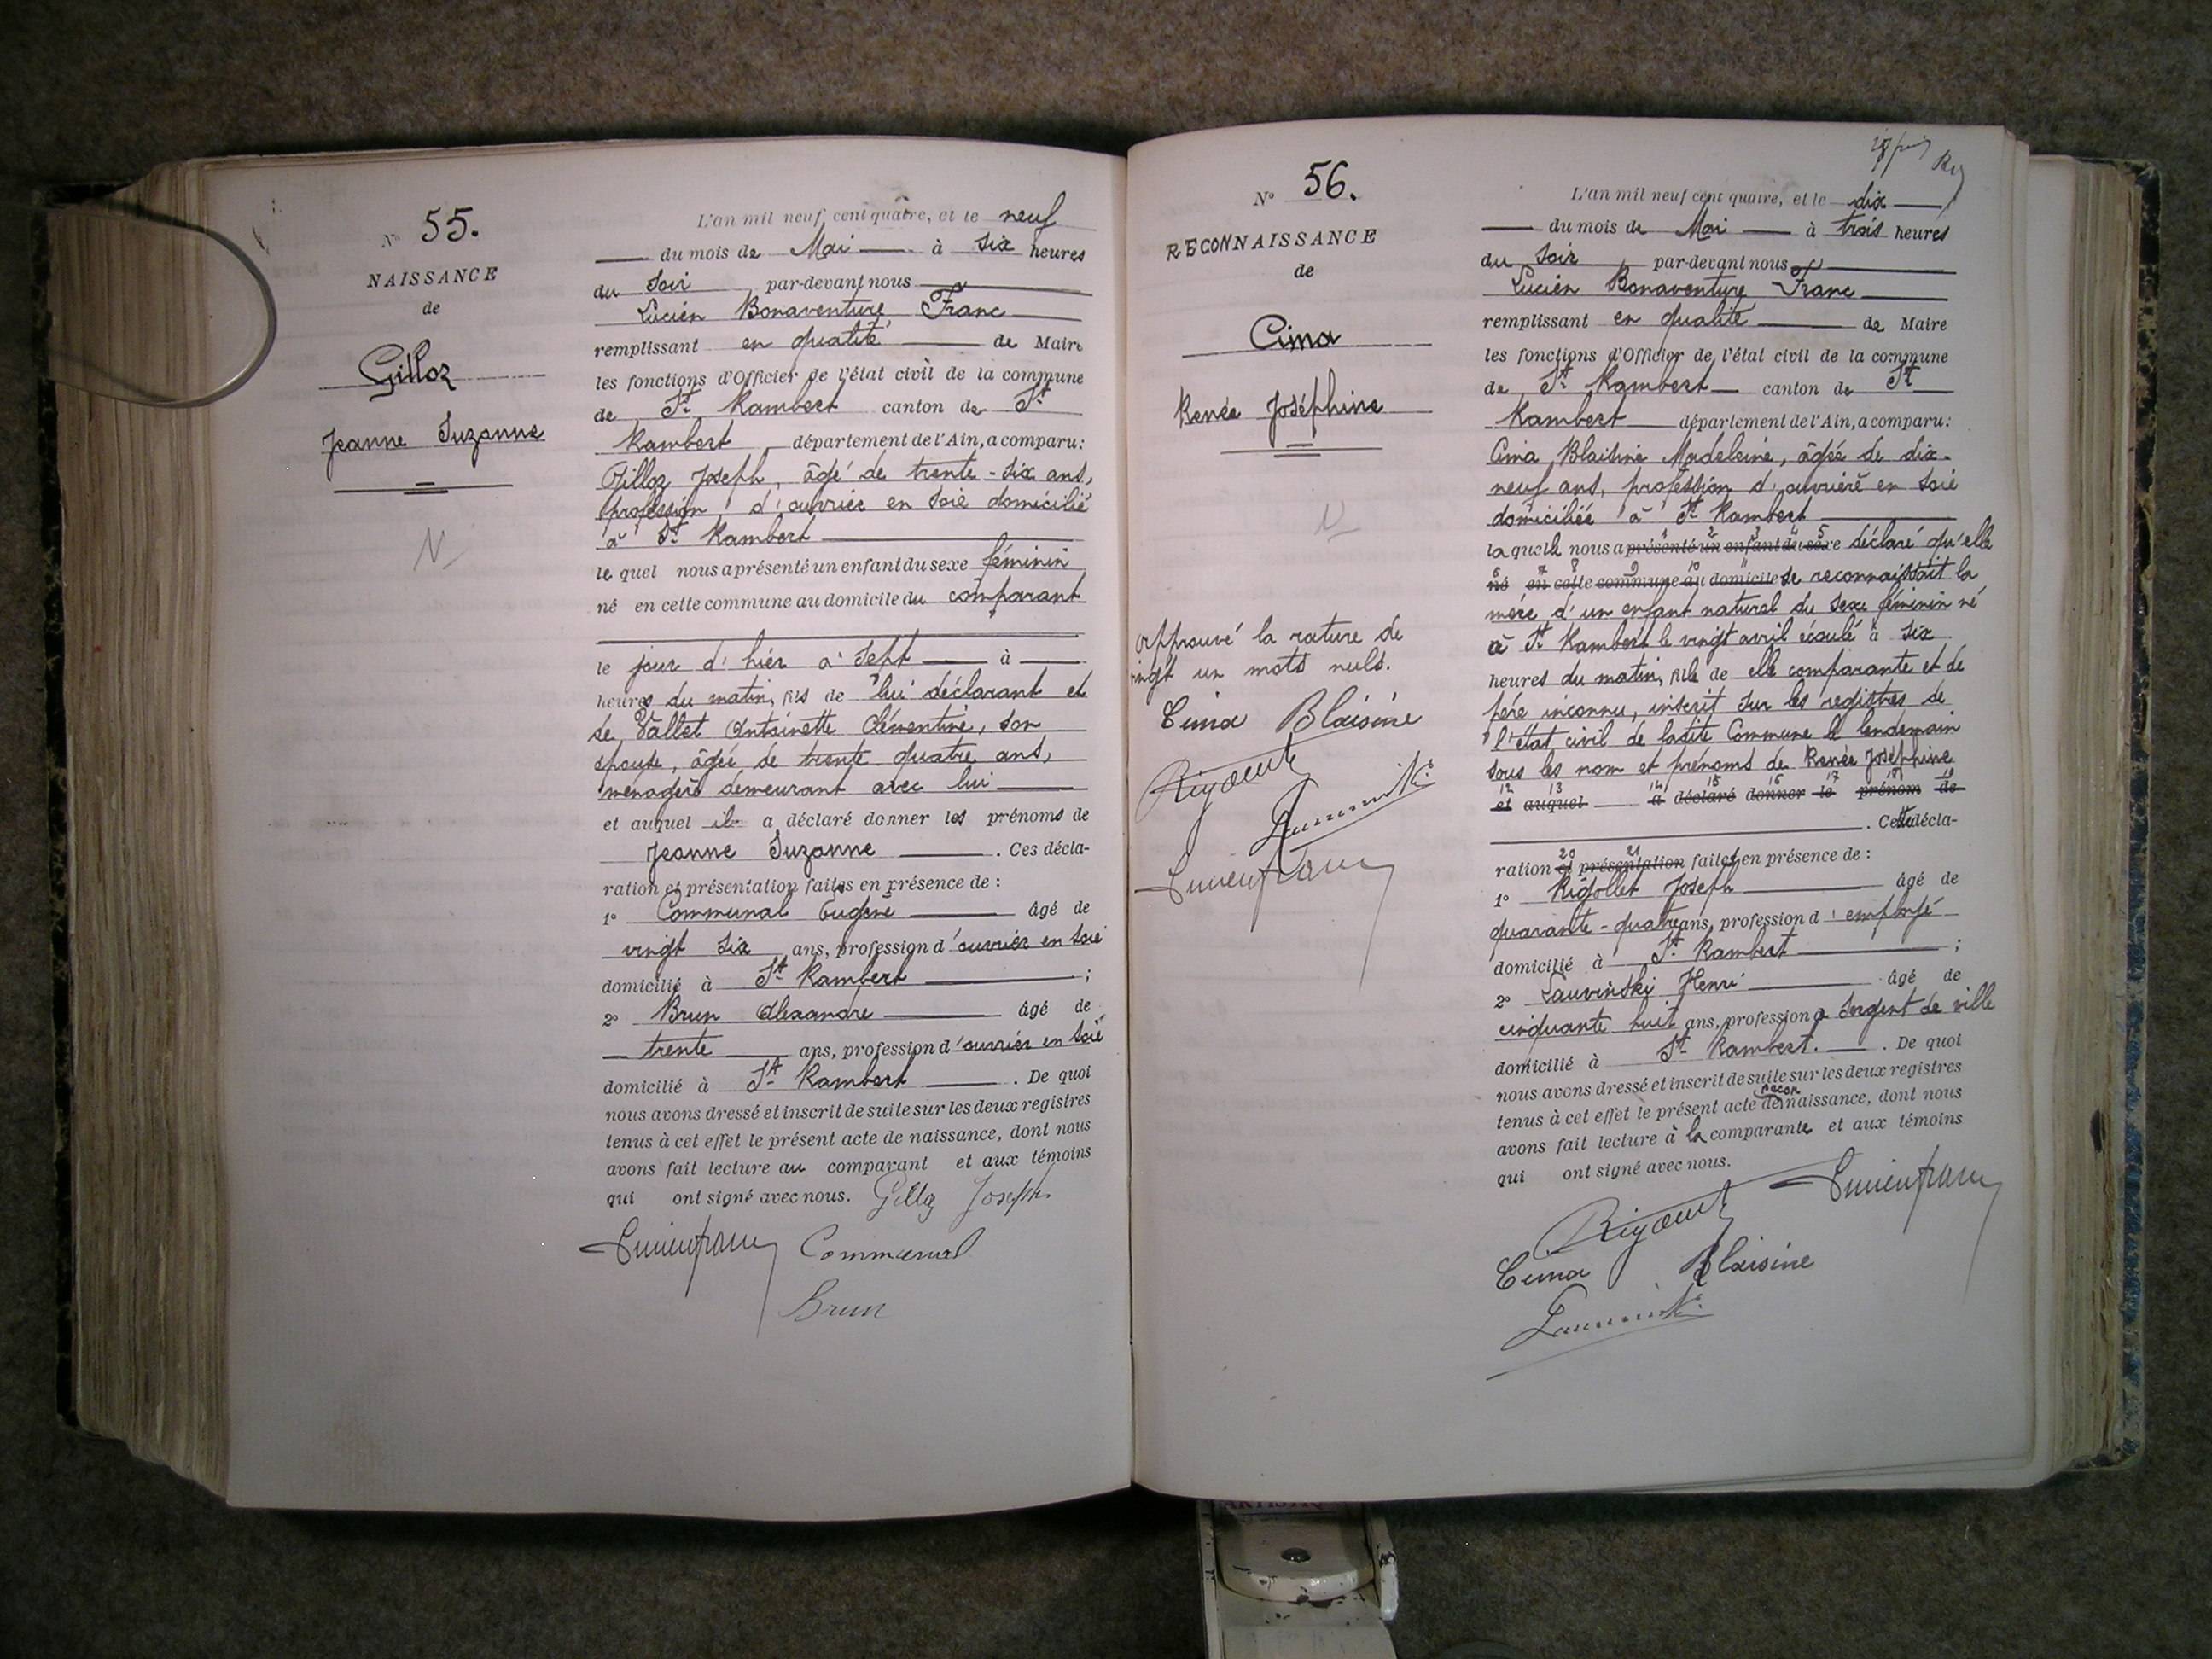 N° 55.
NAISSANCE
de
Gilloz
Jeanne Suzanne
N
L'an mil neuf cent quatre, et le neuf
du mois de Mai à six heures
du soir par-devant nous
Lucien Bonaventure Franc
remplissant en qualité de Maire
les fonctions d'Officier de l'état civil de la commune
de St Rambert canton de St
Rambert département de l'Ain, a comparu:
Gilloz Joseph, âgé de trente-six ans,
profession d'ouvrier en soie domicilié
à St Rambert
lequel nous a présenté un enfant du sexe féminin
né en cette commune au domicile du comparant
le jour d'hier à sept à
heures du matin, fils de lui déclarant et
de Vallet Antoinette Clémentine, son
épouse, âgée de trente quatre ans,
ménagère demeurant avec lui
et auquel il a déclaré donner les prénoms de
Jeanne Suzanne. Ces décla-
ration et présentation faites en présence de :
1° Communal Eugène âgé de
vingt six ans, profession d'ouvrier en soie
domicilié à St Rambert ;
2° Brun Alexandre âgé de
trente ans, profession d'ouvrier en soie
domicilié à St Rambert. De quoi
nous avons dressé et inscrit de suite sur les deux registres
tenus à cet effet le présent acte de naissance, dont nous
avons fait lecture au comparant et aux témoins
qui ont signé avec nous. Gilloz Joseph
Lucien Franc Communal
Brun
N° 56.
RECONNAISSANCE
de
Cima
Renée Joséphine
N
Approuvé la rature de
vingt un mots nuls.
Cima Blaisine
Lucien Franc
L'an mil neuf cent quatre, et le dix
du mois de Mai à trois heures
du soir par-devant nous
Lucien Bonaventure Franc
remplissant en qualité de Maire
les fonctions d'Officier de l'état civil de la commune
de St Rambert canton de St
Rambert département de l'Ain, a comparu:
Cima Blaisine Madeleine, âgée de dix-
neuf ans, profession d'ouvrière en soie
domiciliée à St Rambert
laquelle nous a présenté un enfant du sexe déclaré qu'elle
né en cette commune au domicile se reconnaissait la
mère d'un enfant naturel du sexe féminin né
à St Rambert le vingt avril écoulé à six
heures du matin, fille de elle comparante et de
père inconnu, inscrit sur les registres de
l'état civil de ladite Commune le lendemain
sous les nom et prénoms de Renée Joséphine
et auquel a déclaré donner le prénom de
. Cette décla-
ration et présentation faite en présence de :
1° Rigollet Joseph âgé de
quarante-quatre ans, profession d'employé
domicilié à St Rambert ;
2° Lauvinski Henri âgé de
cinquante huit ans, profession d sergent de ville
domicilié à St Rambert. De quoi
nous avons dressé et inscrit de suite sur les deux registres
tenus à cet effet le présent acte de reconnaissance, dont nous
avons fait lecture à la comparante et aux témoins
qui ont signé avec nous.
Lucien Franc
Cima Blaisine